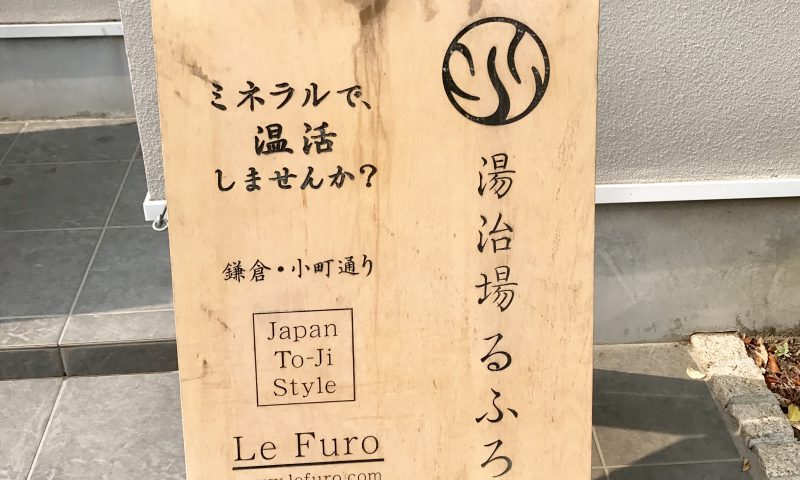 湯治場るふろ
ミネラルで、
温活
しませんか?
鎌倉・小町通り
Japan
To-Ji
Style
Le Furo
www.lefuro.com